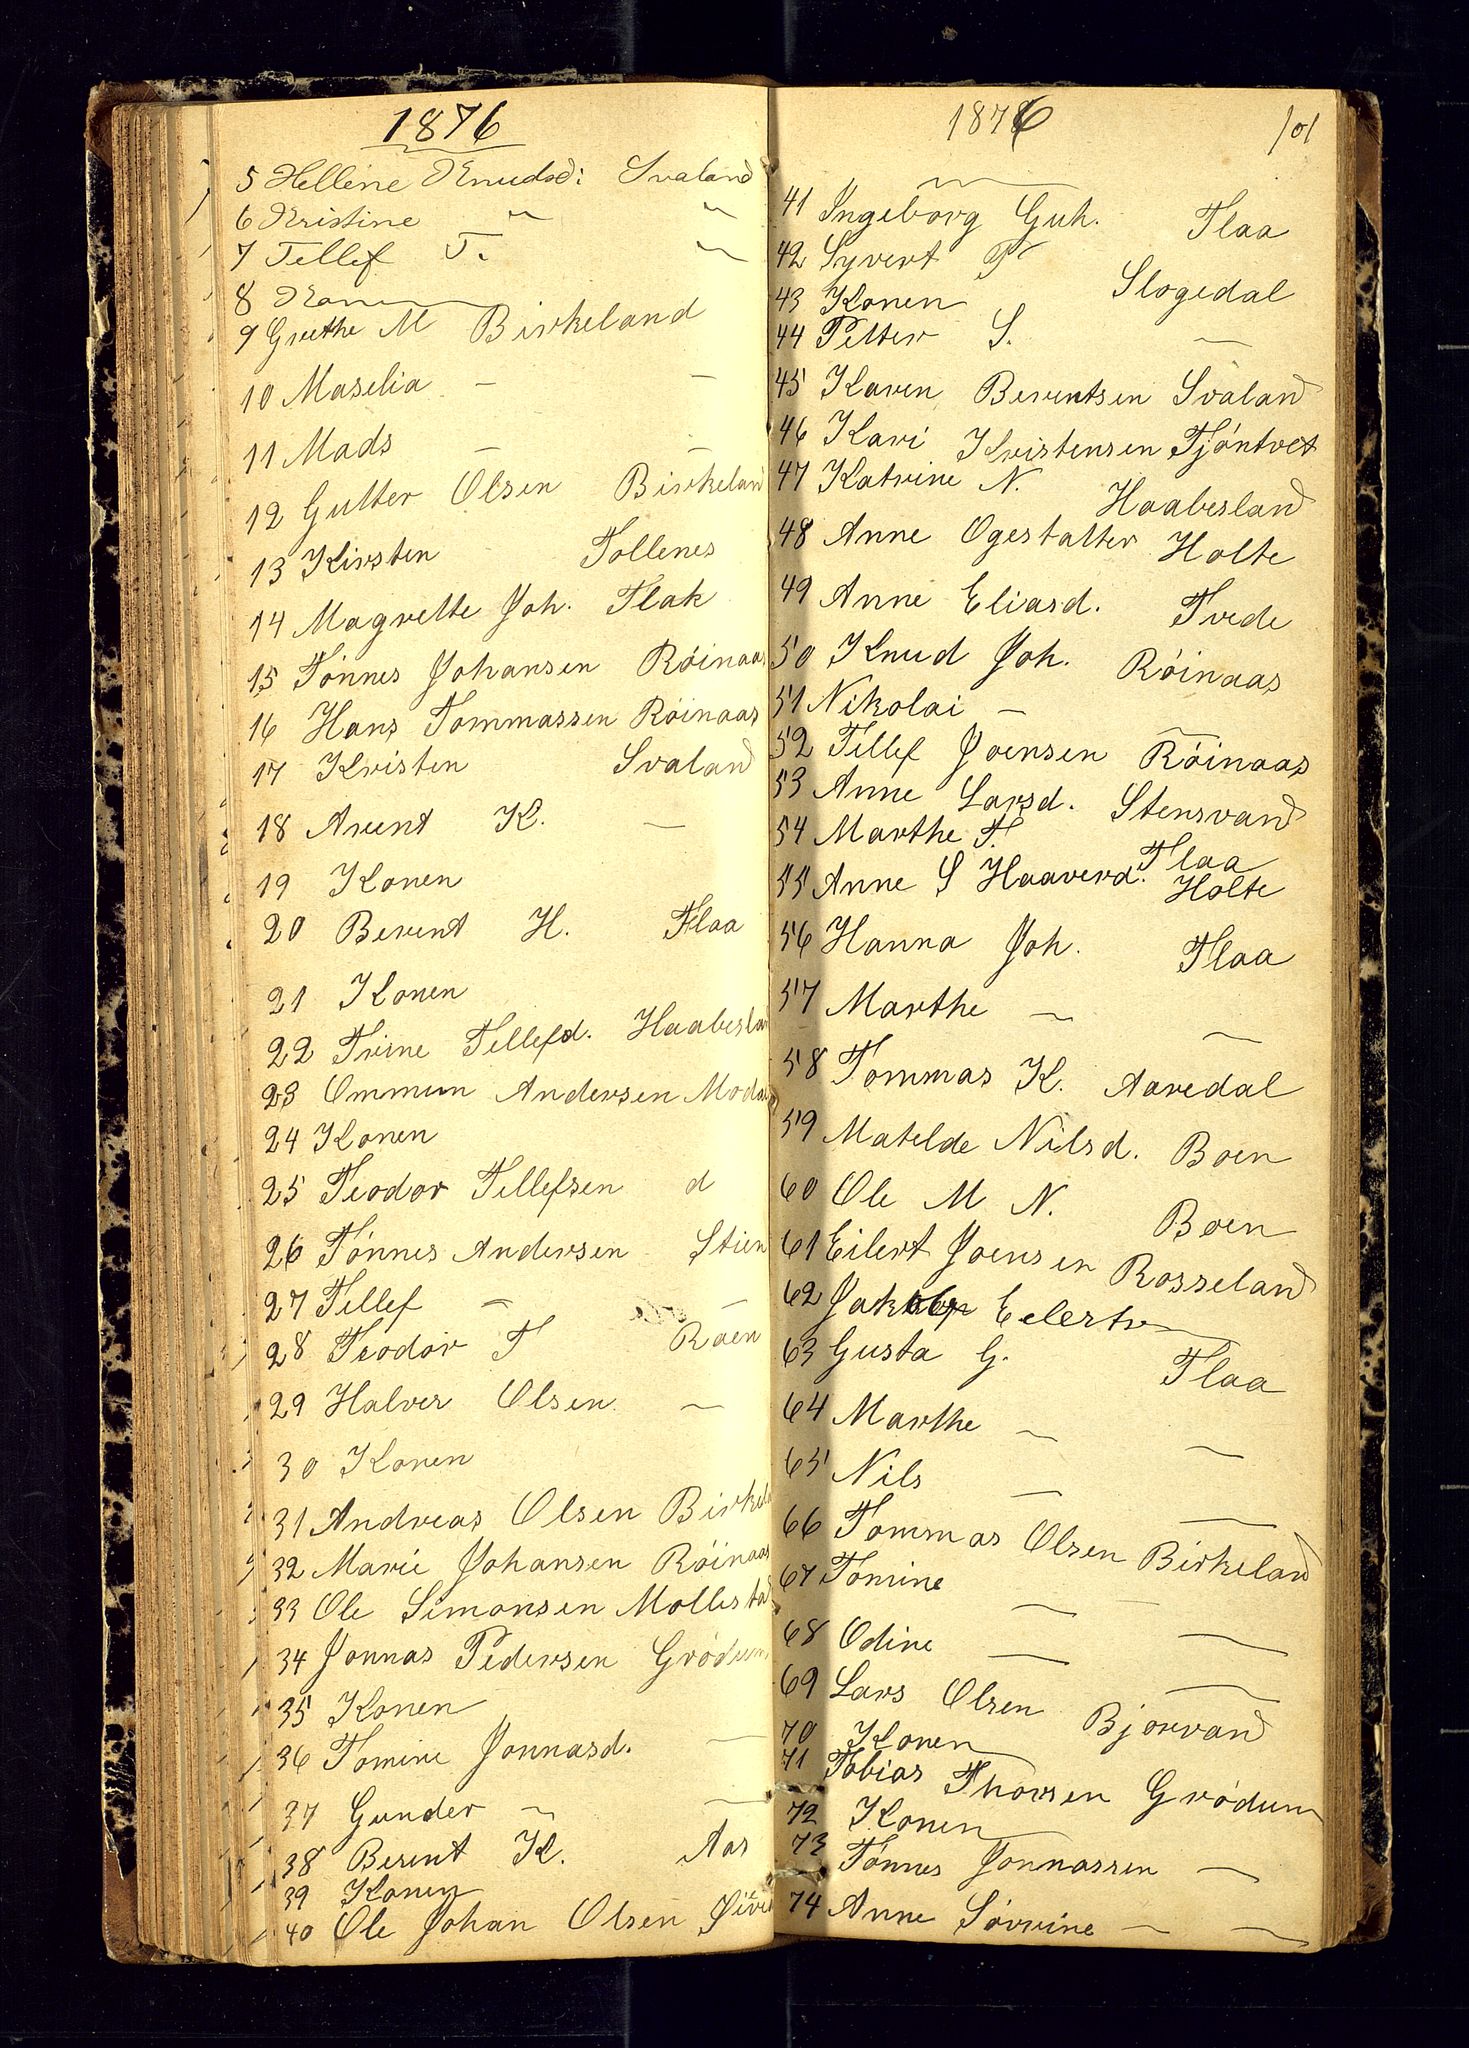 1876
5 Hellene Knudsd: Svaland
6 Kristine " "
7 Tellef T. "
8 Konen
9 Grethe M Birkeland
10 Maselia - -
11 Mads - -
12 Gutter Olsen Birkeland
13 Kirsten Tollenes
14 Magrette Joh. Flak
15 Tønnes Johansen Røinaas
16 Hans Tommassen Røinaas
17 Kristen Svaland
18 Arent K. -
19 Konen
20 Berent H. Flaa
21 Konen
22 Trine Tellefd. Haabesla
23 Ommun Andersen Moda
24 Konen
25 Teodor Tellefsen d
26 Tønnes Andersen Stien
27 Tellef - -
28 Teodor T Raen
29 Halver Olsen -
30 Konen
31 Andreas Olsen Birkela
32 Marie Johansen Røinaas
33 Ole Simonsen Mollestad
34 Jonnas Pedersen Grødum
35 Konen
36 Tomine Jonnasd. -
37 Gunder - -
38 Berent K. Aas
39 Konen
40 Ole Johan Olsen
1876 101
41 Ingeborg Guh. Flaa
42 Syvert T Slogedal
43 Konen
44 Petter S. -
45 Karen Berentsen Svaland
46 Kari Kristensen Tjøntvet
47 Katrine N. Haabesland
48 Anne Ogestatter Holte
49 Anne Eliasd. Tvede
50 Knud Joh. Røinaas
51 Nikolai - -
52 Tellef Joensen Røinaas
53 Anne Larsd. Stensvand
54 Marthe T. Flaa
55 Anne S Haaverd. Holte
56 Hanna Joh. Flaa
57 Marthe - -
58 Tommas K. Aaredal
59 Matelde Nilsd. Boen
60 Ole M N. Boen
61 Eilert Joensen Rosseland
62 Jakob Eelerts
63 Gusta G. Flaa
64 Marthe - -
65 Nils - -
66 Tommas Olsen Birkeland
67 Tomine - -
68 Odine - -
69 Lars Olsen Bjorvand
70 Konen
71 Tobias Thorsen Grødum
72 Konen
73 Tønnes Jonnassen -
74 Anne Sørrine - -